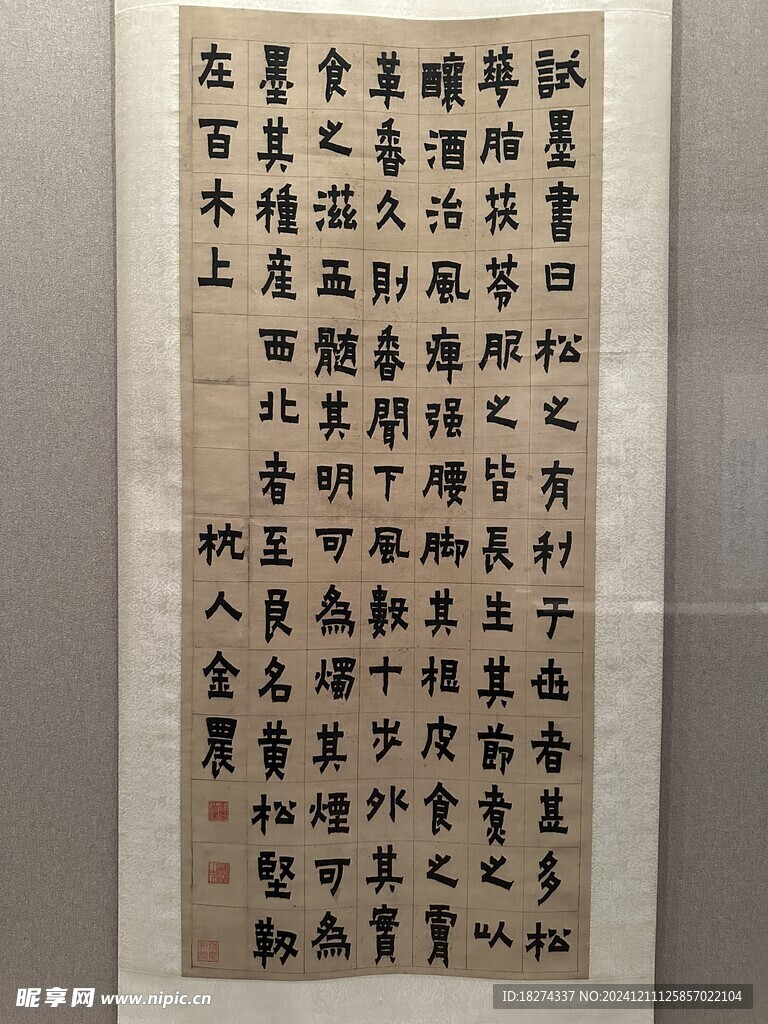 試墨書曰松之有利于世者甚多松
華脂茯苓服之皆長生其節煮之以
釀酒治風痺强腰脚其根皮食之膚
革香久則香聞下風數十步外其實
食之滋血髓其明可為燭其煙可為
墨其種産西北者至良名黄松堅韌
在百木上 杭人金農
昵享网 www.nipic.cn
ID:18274337 NO:20241211125857022104